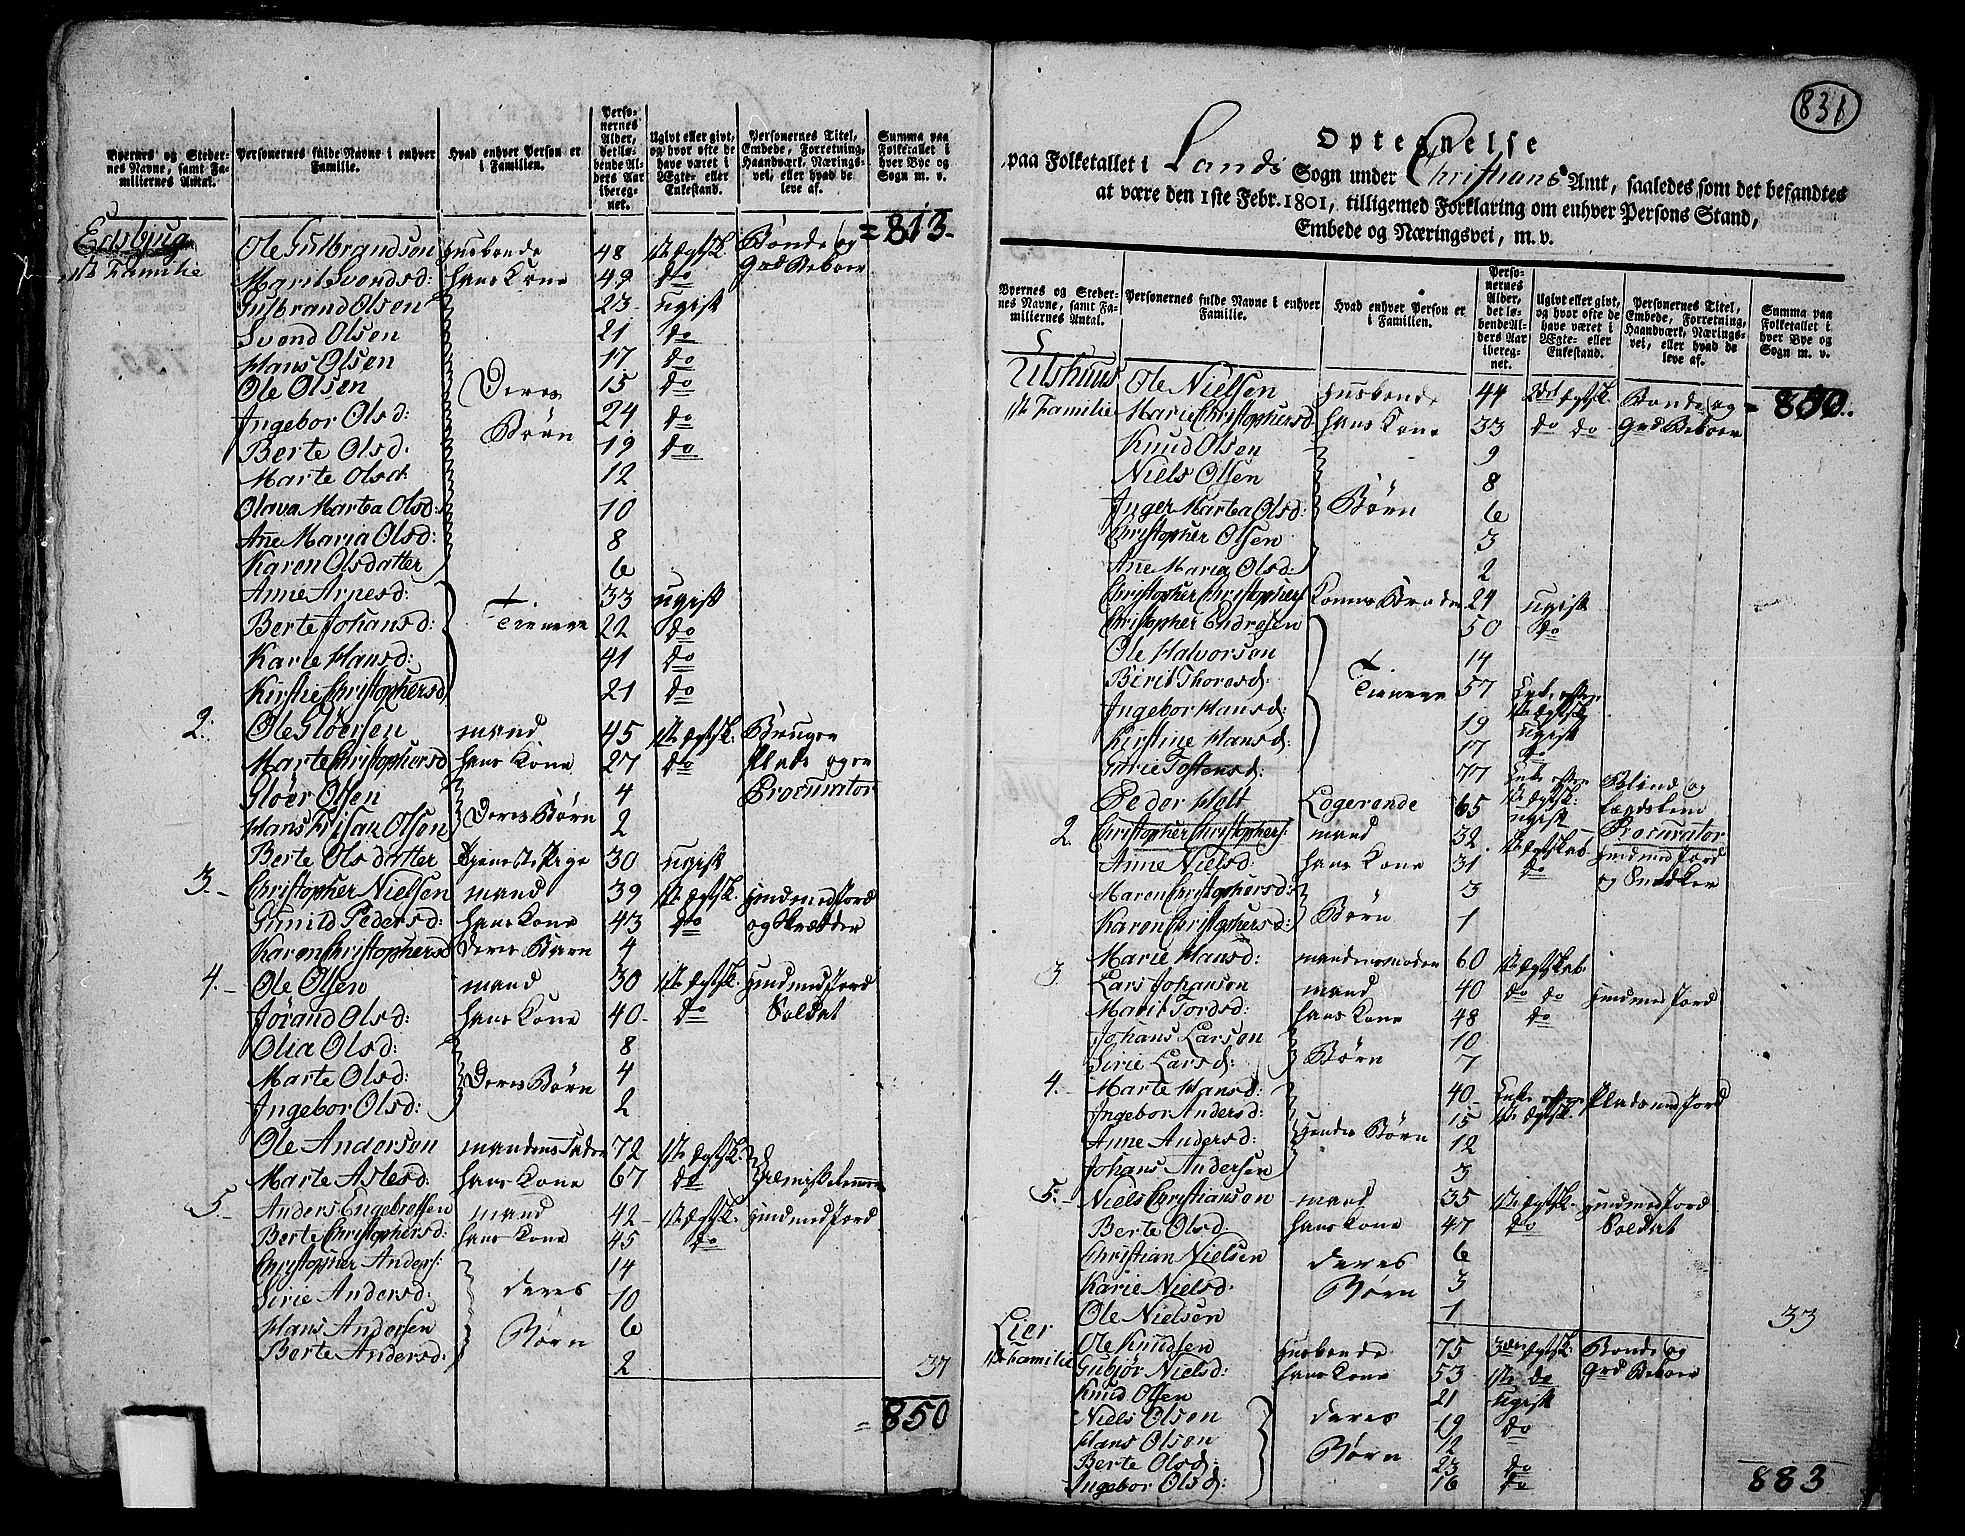 Byernes og Stedernes Navne, samt Familiernes Antal.
Personernes fulde Navne i enhver Familie.
Hvad enhver Person er i Familien.
Personernes Alder, det løbende Alders Aar iberegnet.
Ugivt eller givt, og hvor ofte de have været i Ægte- eller Enkestand.
Personernes Titel, Embede, Forretning, Haandværk, Næringsvei, eller hvad de leve af.
Summa paa Folketallet i hver Bye og Sogn m. v.
= 813.
Edsbjug
1ste Familie Ole Gulbrandson Husbonde 48 1te Ægtsk. Bonde og
Marit Svendsd: hans Kone 49 do Grd Beboer
Gulbrand Olsen 23 ugift
Svend Olsen 21 do
Hans Olsen 17 do
Ole Olsen Deres 15 do
Ingebor Olsd: Børn 24 do
Berte Olsd. 19 do
Marte Olsd. 12
Olava Martea Olsd: 10
Ane Maria Olsd: 8
Karen Olsdatter 6
Anne Arnesd: 33 ugift
Berte Johansd: Tienere 22 do
Karie Hansd: 41 do
Kirstie Christophersd 21 do
2. Ole Gloersen mand 45 1te Ægtsk. Bruger
Marte Christophersd hans Kone 27 do Plads og er
Gloer Olsen 4 Procurator
Hans Olsen Deres Børn 2
Berte Olsdatter Tjeneste Pige 30 ugift
3. Christopher Nielsen mand 39 1te Ægtsk. Huusmd med Jord
Gunild Pedersd: hans Kone 43 do og Skrædder
Karen Christophersd Deres Barn 4
4. Ole Olsen mand 30 1te Ægtsk. Huusmd med Jord
Jørand Olsd: hans Kone 40 do Soldat
Olia Olsd: 8
Marte Olsd: Deres Børn 4
Ingebor Olsd: 2
Ole Anderson mandens Fader 72 1te Ægtsk.
Marte Aslesd: hans Kone 67 do
5. Anders Engebretsen mand 42 1te Ægtsk. Huusmd med Jord
Berte Christophersd: hans Kone 45 do
Christopher Anders: 14
Sirie Andersd: deres 10
Hans Andersen Børn 6
Berte Andersd: 2
37
= 850
831
Optegnelse
paa Folketallet i Lands Sogn under Christians Amt, saaledes som det befandtes
at være den 1ste Febr. 1801, tilligemed Forklaring om enhver Persons Stand,
Embede og Næringsvei, m. v.
Byernes og Stedernes Navne, samt Familiernes Antal.
Personernes fulde Navne i enhver Familie.
Hvad enhver Person er i Familien.
Personernes Alder, det løbende Alders Aar iberegnet.
Ugivt eller givt, og hvor ofte de have været i Ægte- eller Enkestand.
Personernes Titel, Embede, Forretning, Haandværk, Næringsvei, eller hvad de leve af.
Summa paa Folketallet i hver Bye og Sogn m. v.
Ulshuus Ole Nielsen Husbonde 44 2det Ægtsk. Bonde og = 850.
1te Familie Marie Christophersd hans Kone 33 do do Grd Beboer
Knud Olsen 9
Niels Olsen 8
Inger Martea Olsd: Børn 6
Christopher Olsen 3
Ane Maria Olsd: 2
Christopher Christophers Konens Broder 24 ugift
Christopher Endresen 50 do
Ole Halvorson 14
Birit Thoresd: Tienere 57 Enke efter 1te Ægtsk.
Ingebor Hansd: 19 ugift
Kirstine Hansd: 17 do
Gurie Tostensd: 77 Enke efter 1te Ægtsk: Blind og
Peder Holt Logerende 65 ugift Procurator
2. Christopher Christophers: mand 32 1te Ægtskab Huusmd med Jord
Anne Nielsd: hans Kone 31 do og Snedker
Maren Christophersd: 3
Karen Christophersd: Børn 1
Marie Hansd: mandens moder 60 1te Ægtskab
3 Lars Johanson mand 40 do do Huusmd med Jord
Marit Tordsd: hans Kone 48 do
Johans Larson 10
Sirie Larsd: Børn 7
4. Marte Hansd: 40 Enke efter 1te Ægtsk. Plads med Jord
Ingebor Andersd: 15
Anne Andersd: Hendes Børn 12
Johans Andersen 3
5. Niels Christianson mand 35 1te Ægtsk. Huusmd med Jord
Berte Olsd: hans Kone 47 do Soldat
Christian Nielsen deres 6
Karie Nielsd. Børn 3
Ole Nielsen 1
33
Lier Ole Knudsen Husbonde 75 3die Ægtsk: Bonde og
1te Familie Gubjør Nielsd: hans Kone 53 1te do Grd Beboer
Knud Olsen 21 ugift
Niels Olsen deres 19 do
Hans Olson Børn 12
Berte Olsd: 23 do
Ingebor Olsd: 16 do
883